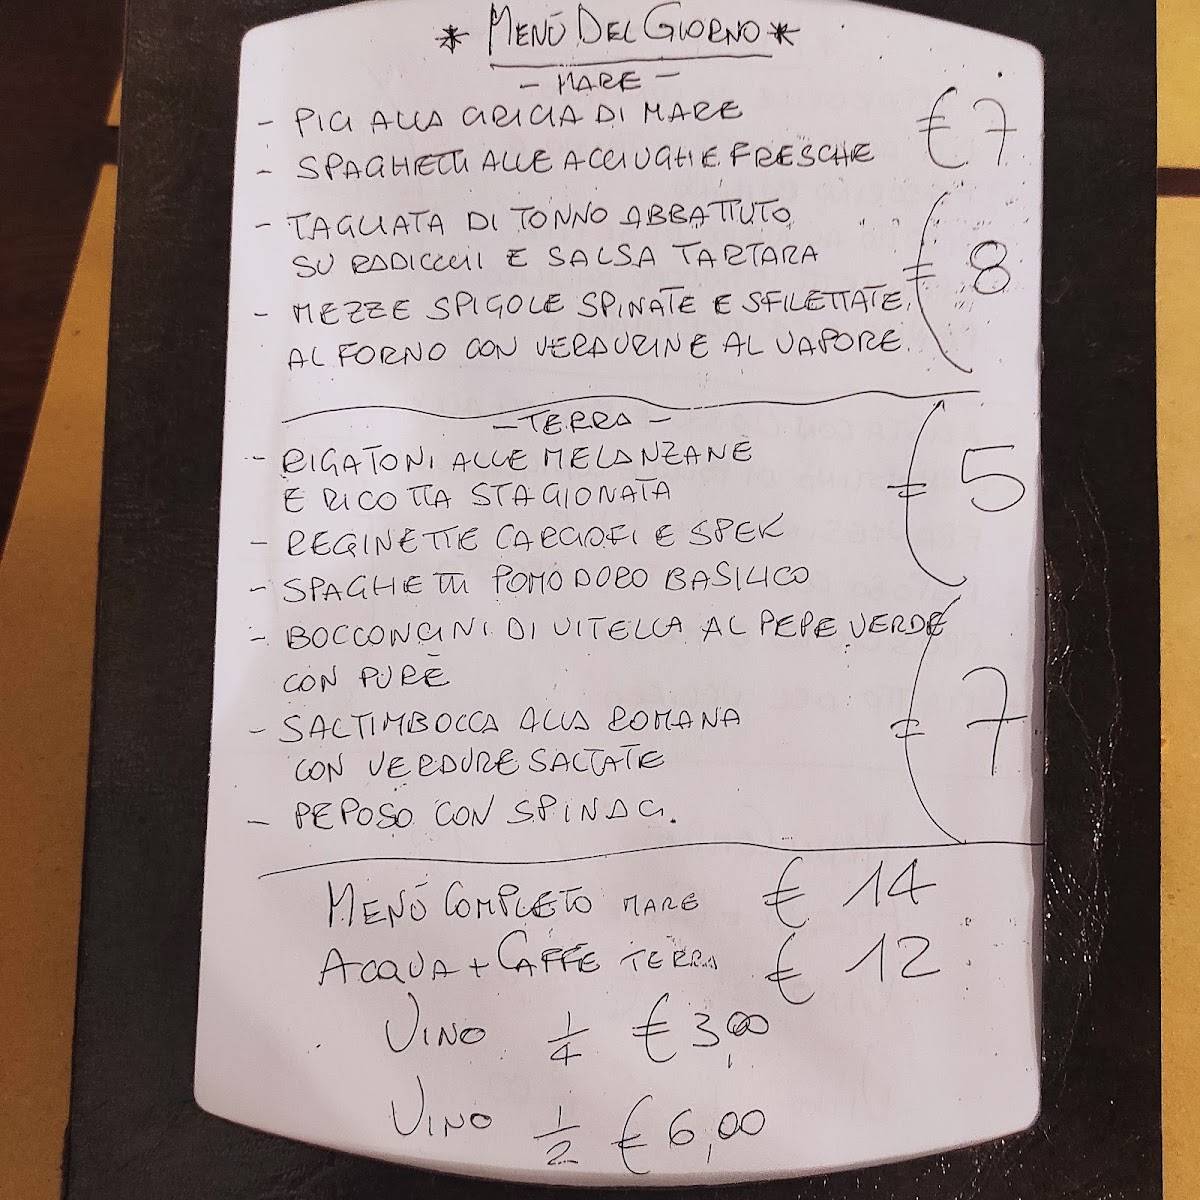 * MENÙ DEL GIORNO *
- MARE -
- PICI ALLA GRICIA DI MARE
€ 7
- SPAGHETTI ALLE ACCIUGHE FRESCHE
- TAGLIATA DI TONNO ABBATTUTO
SU RADICCHI E SALSA TARTARA
€ 8
- MEZZE SPIGOLE SPINATE E SFILETTATE
AL FORNO CON VERDURINE AL VAPORE.
- TERRA -
- RIGATONI ALLE MELANZANE
E RICOTTA STAGIONATA
€ 5
- REGINETTE CARCIOFI E SPEK
- SPAGHETTI POMODORO BASILICO
- BOCCONCINI DI VITELLA AL PEPE VERDE
CON PURÈ
- SALTIMBOCCA ALLA ROMANA
€ 7
CON VERDURE SALTATE
- PEPOSO CON SPINACI.
MENÙ COMPLETO MARE € 14
ACQUA + CAFFÈ TERRA € 12
VINO 1/4 € 3,00
VINO 1/2 € 6,00